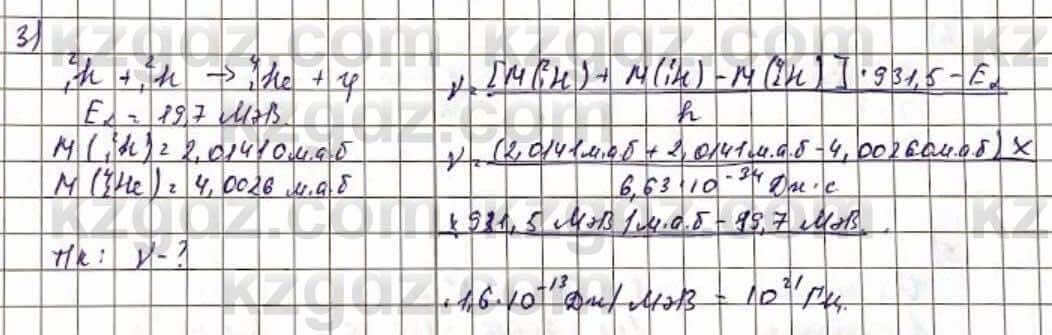 3)
²₁h + ²₁h → ⁴₂He + γ
E₂ = 19,7 МэВ.
M(²₁h) = 2,01410 м.а.б
M(⁴₂He) = 4,0026 м.а.б
Тк: γ-?
γ = [M(²₁H) + M(²₁H) - M(⁴₂H)]·931,5 - E₂
h
γ = (2,0141 м.а.б + 2,0141 м.а.б - 4,00260 м.а.б) ×
6,63·10⁻³⁴ Дж·с
× 931,5 МэВ/м.а.б - 19,7 МэВ.
·1,6·10⁻¹³ Дж/МэВ = 10²¹ Гц.
kzgdz.com